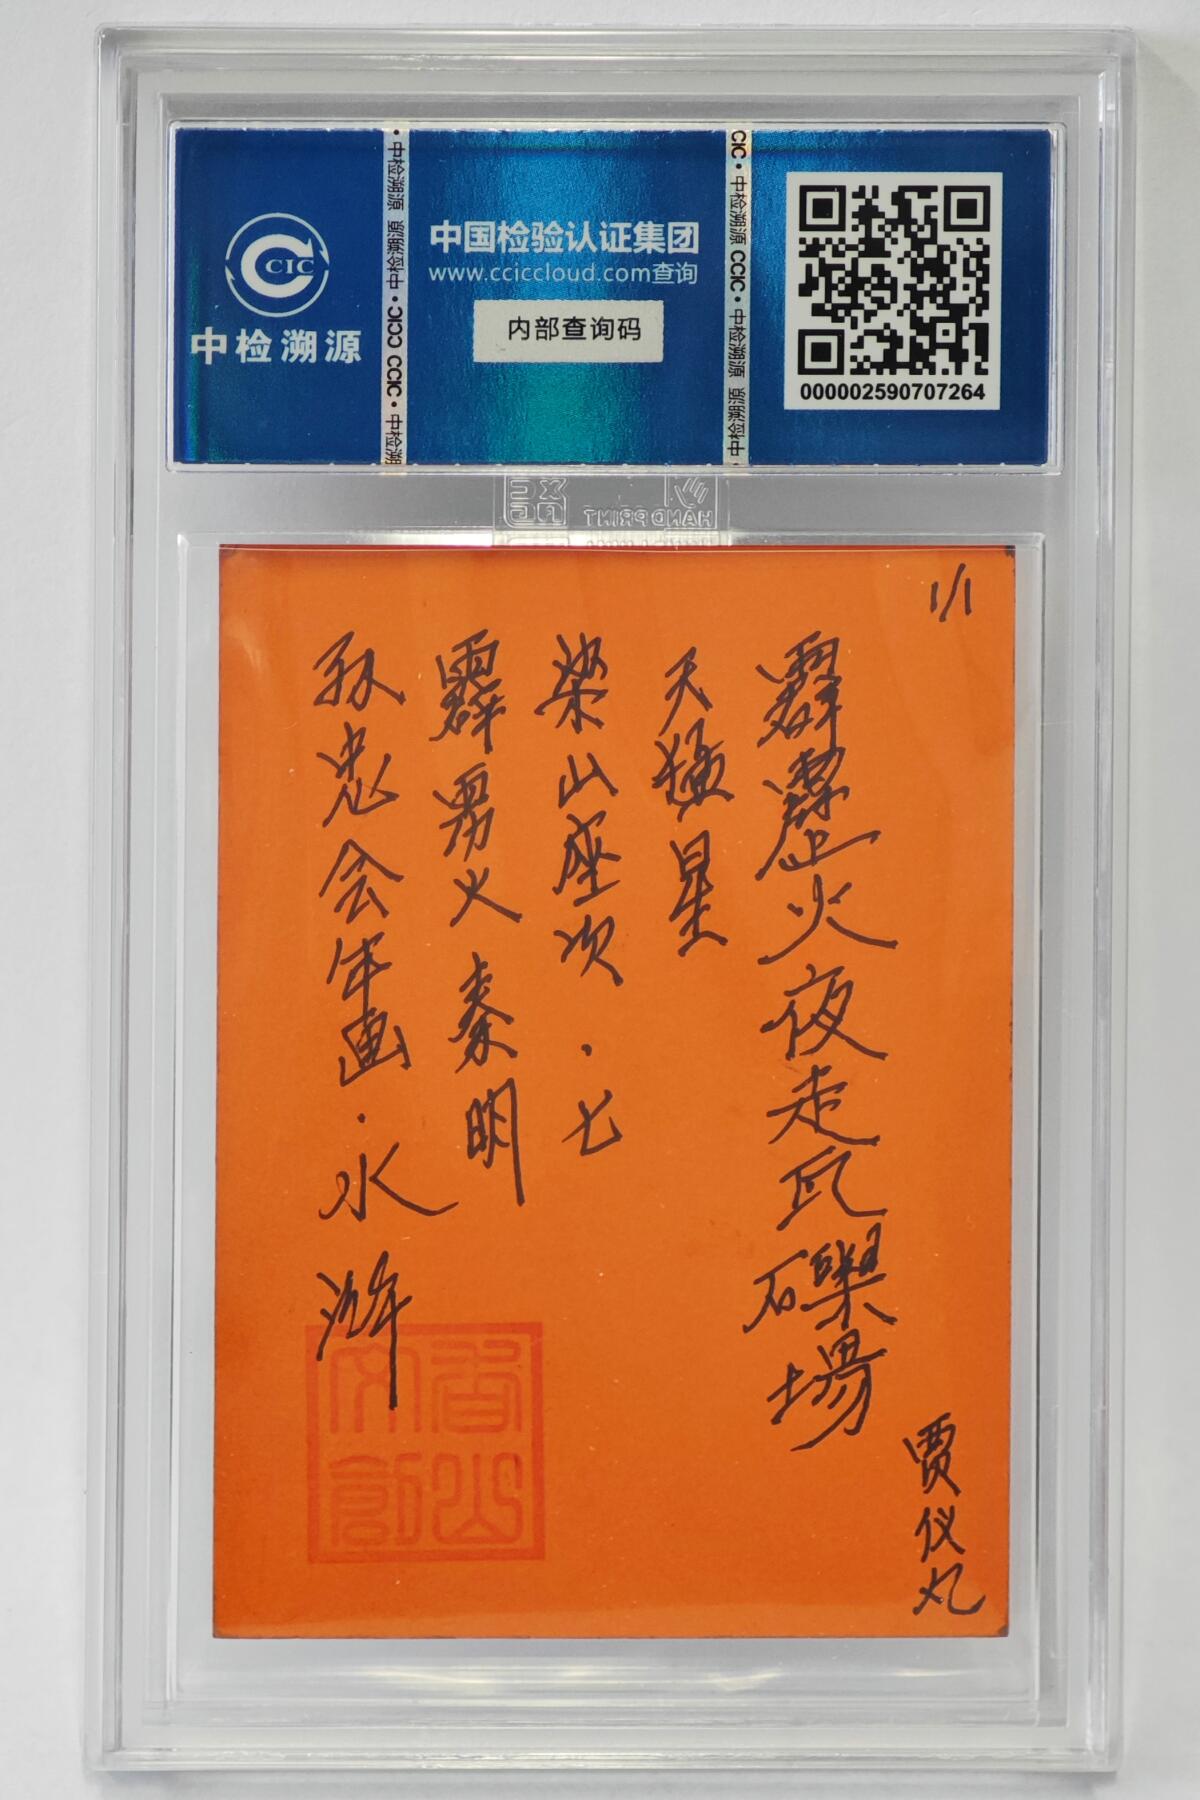 CCIC
中检溯源
中国检验认证集团
www.cciccloud.com查询
内部查询码
000002590707264
中检溯源 CCIC · 中检溯源 · CCIC
CIC · 中检溯源 CCIC · 中检溯源
HANDPRINT
1/1
霹靂火夜走瓦礫場
天猛星
梁山座次·七
霹雳火 秦明
孙忠会年画·水浒
贾仪丸
香山
文创